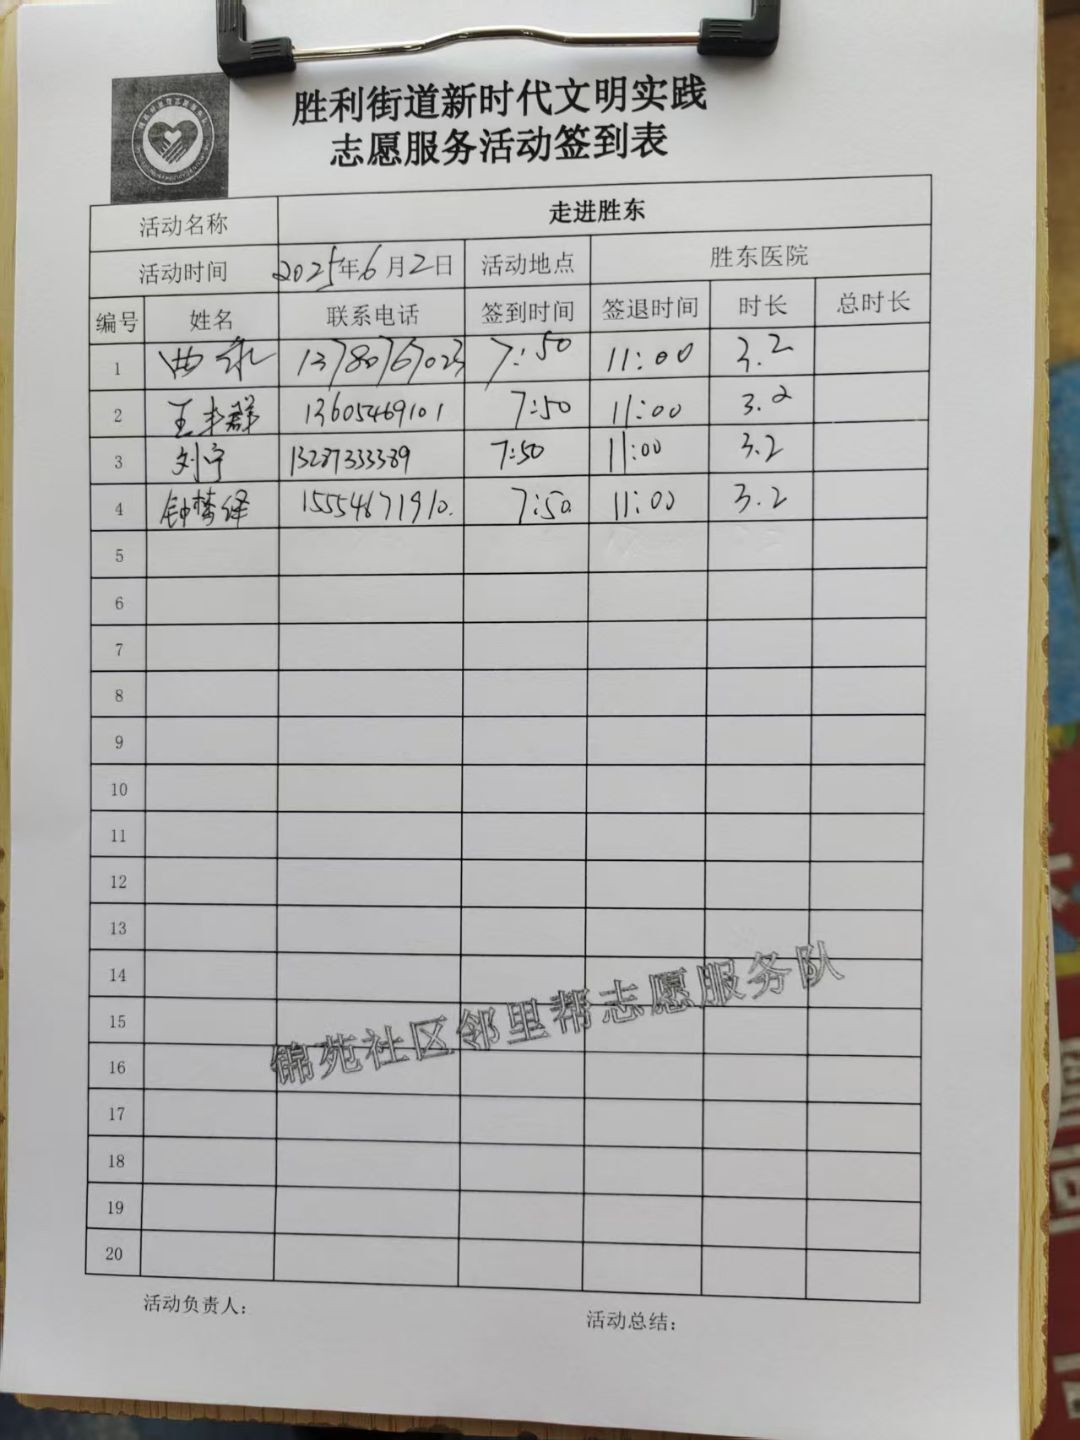 胜利街道新时代文明实践
志愿服务活动签到表
活动名称 走进胜东
活动时间 2025年6月2日 活动地点 胜东医院
编号 姓名 联系电话 签到时间 签退时间 时长 总时长
1 曲 13780767023 7:50 11:00 3.2
2 王 群 13605469101 7:50 11:00 3.2
3 刘宁 13287333389 7:50 11:00 3.2
4 钟梦绎 15554671910. 7:50. 11:00 3.2
5
6
7
8
9
10
11
12
13
14
15
16
17
18
19
20
锦苑社区邻里帮志愿服务队
活动负责人：
活动总结：